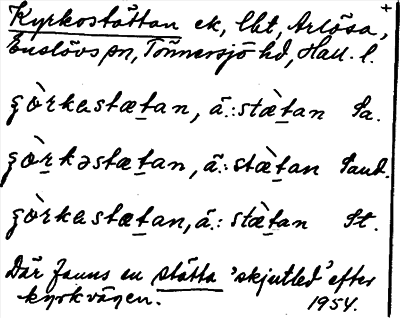 Kyrkostättan ek, lbt, Arlösa, +
Enslövs sn, Tönnersjö hd, Hall. l.
çò̀rkastæt̲an, ä.: stæ̀t̲an Sa.
çòr̲kəstæt̲an, ä.: stæ̀t̲an Sand.
çòrkastæt̲an, ä.: stæ̀t̲an St.
Där fanns en stätta 'skjutled' efter
kyrkvägen. 1954.